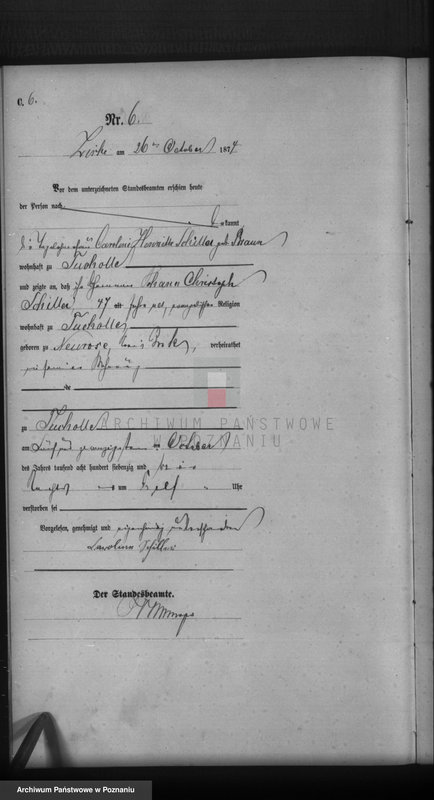 C. 6.
Nr. 6.
Zirke am 26ten October 1874
Vor dem unterzeichneten Standesbeamten erschien heute
der Person nach
bekannt
die Caroline Henriette Schiller geb. Braun
wohnhaft zu Tucholle
und zeigte an, daß ihr Ehemann Johann Christoph
Schiller, 47 alt Jahre alt, evangelischer Religion
wohnhaft zu Tucholle
geboren zu Neurose, Kreis verheirathet
zu Tucholle
ARCHIWUM PAŃSTWOWE
W POZNANIU
am October
des Jahres tausend acht hundert siebenzig und vier
Nachts um elf Uhr
verstorben sei
Vorgelesen, genehmigt und eigenhändig unterschrieben
Caroline Schiller
Der Standesbeamte.
Archiwum Państwowe w Poznaniu